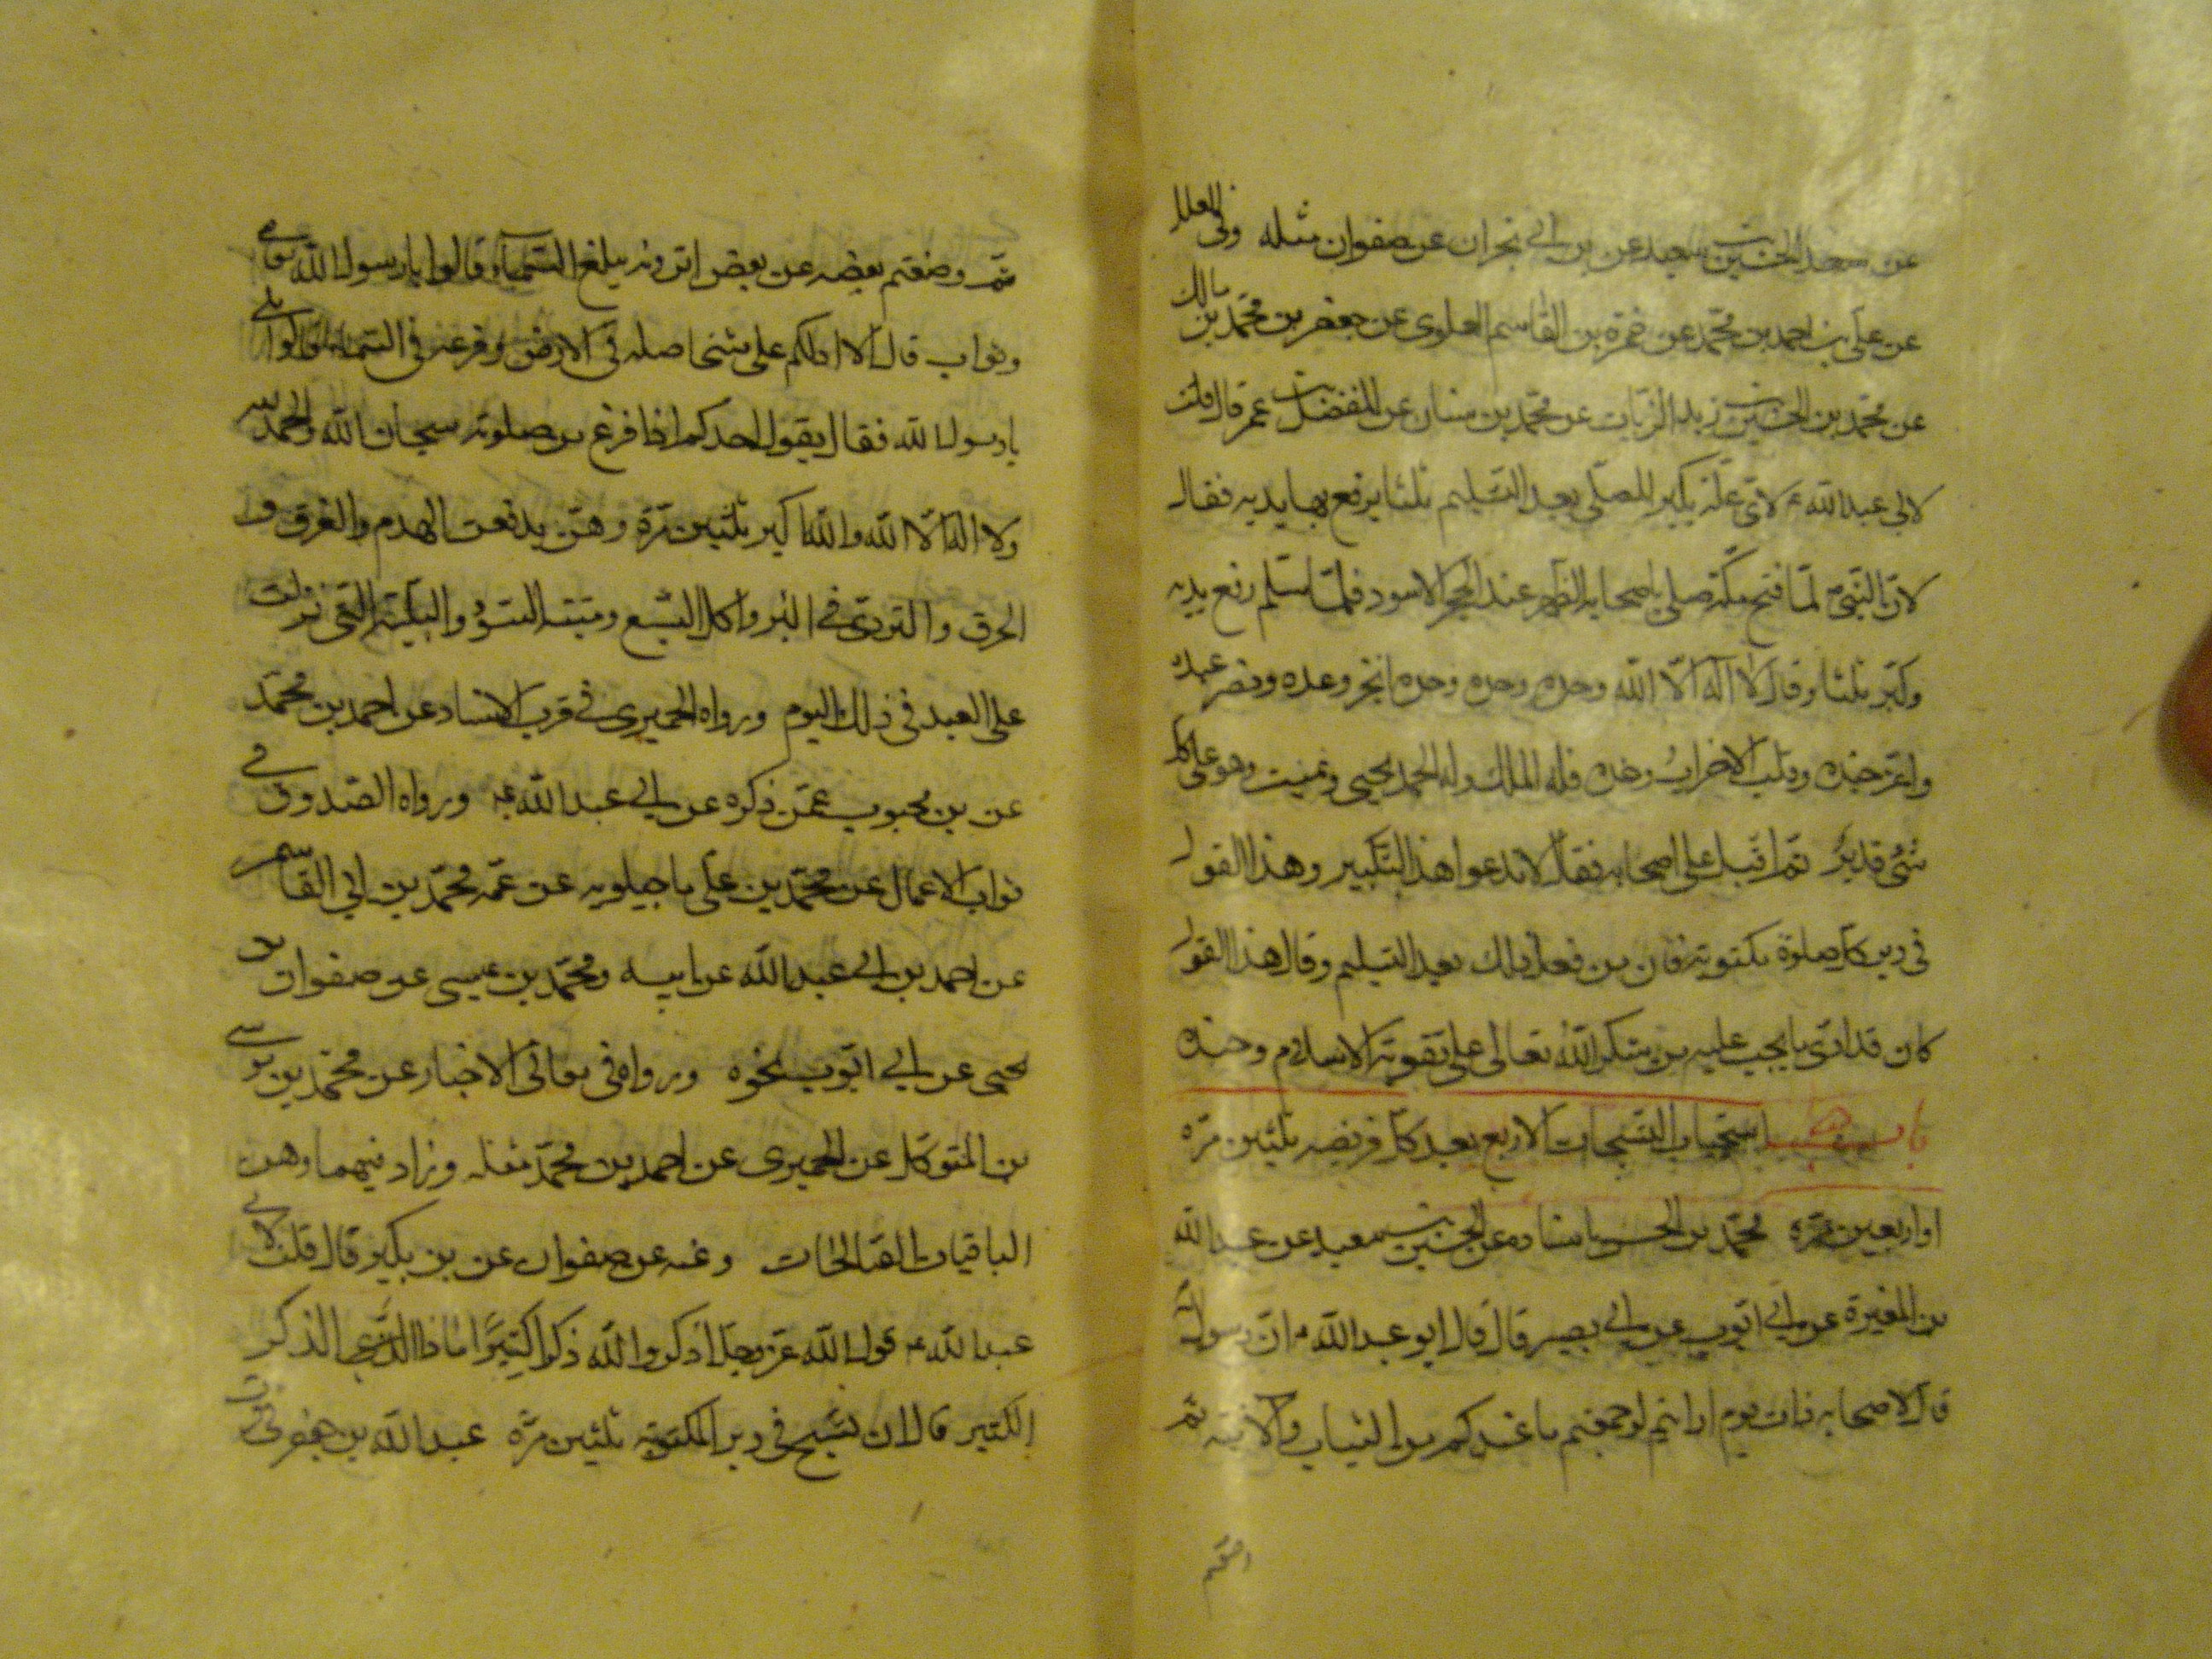 عن الحسين بن سعيد عن بن ابي نجران عن صفوان مثله وفى العلل
عن على بن احمد بن محمّد عن حمزة بن القاسم العلوى عن جعفر بن محمّد بن مالك
عن محمّد بن الحسين بن زيد الزيّات عن محمّد بن سنان عن المفضل بن عمر قال قلت
لابى عبد الله ع لاىّ علّة يكبر المصلّى بعد التسليم ثلثا يرفع بها يديه فقال
لان النبىّ لمّا فتح مكة صلى باصحابه الظهر عند الحجر الاسود فلمّا سلم رفع يديه
وكبّر ثلثا وقال لا اله الّا الله وحده وحده وحده انجز وعده ونصر عبده
واعز جنده وغلب الاحزاب وحده فله الملك وله الحمد يحيى ويميت وهو على كل
شئ قدير ثم اقبل على اصحابه فقال لا تدعوا هذا التكبير وهذا القول
فى دبر كل صلوة مكتوبة فان من فعل ذلك بعد التسليم وقال هذا القول
كان قد ادّى ما يجب عليه من شكر الله تعالى على تقوية الاسلام وجنده
باب استحباب التسبيحات الاربع بعد كل فريضه ثلثين مرّه
او اربعين مرّه محمّد بن الحسن باسناده عن الحسين بن سعيد عن عبد الله
بن المغيرة عن ابى ايّوب عن ابى بصير قال قال ابو عبد الله ع ان رسول الله
قال لاصحابه ذات يوم ارايتم لو جمعتم ما عندكم من الثياب والآنية ثم
ثمّ وضعتم بعضه على بعض اترونه يبلغ السماء قالوا لا يا رسول الله
وثواب قال الا ادلكم على شئ اصله فى الارض وفرعه فى السماء قالوا بلى
يا رسول الله فقال يقول احدكم اذا فرغ من صلوته سبحان الله والحمد لله
ولا اله الّا الله والله اكبر ثلثين مرّة وهنّ يدفعن الهدم والغرق و
الحرق والتردّى فى البر واكل السبع وميتة السوء والبليّة التى نزلت
على العبد فى ذلك اليوم ورواه الحميرى فى قرب الاسناد عن احمد بن محمّد
عن بن محبوب عمّن ذكره عن ابى عبد الله ع ورواه الصدوق فى
ثواب الاعمال عن محمّد بن على ماجيلويه عن عمّه محمّد بن ابى القاسم
عن احمد بن ابى عبد الله عن ابيه ومحمّد بن عيسى عن صفوان بن
يحيى عن ابى ايّوب نحوه ورواه فى معانى الاخبار عن محمّد بن موسى
بن المتوكل عن الحميرى عن احمد بن محمّد مثله وزاد فيهما وهن
الباقيات الصّالحات وعنه عن صفوان عن بن بكير قال قلت لابى
عبد الله ع قول الله عز وجل اذكروا الله ذكرا كثيرًا ماذا الذكر
الكثير قال ان تسبّح فى دبر المكتوبة ثلثين مرّة عبد الله بن جعفر فى قرب